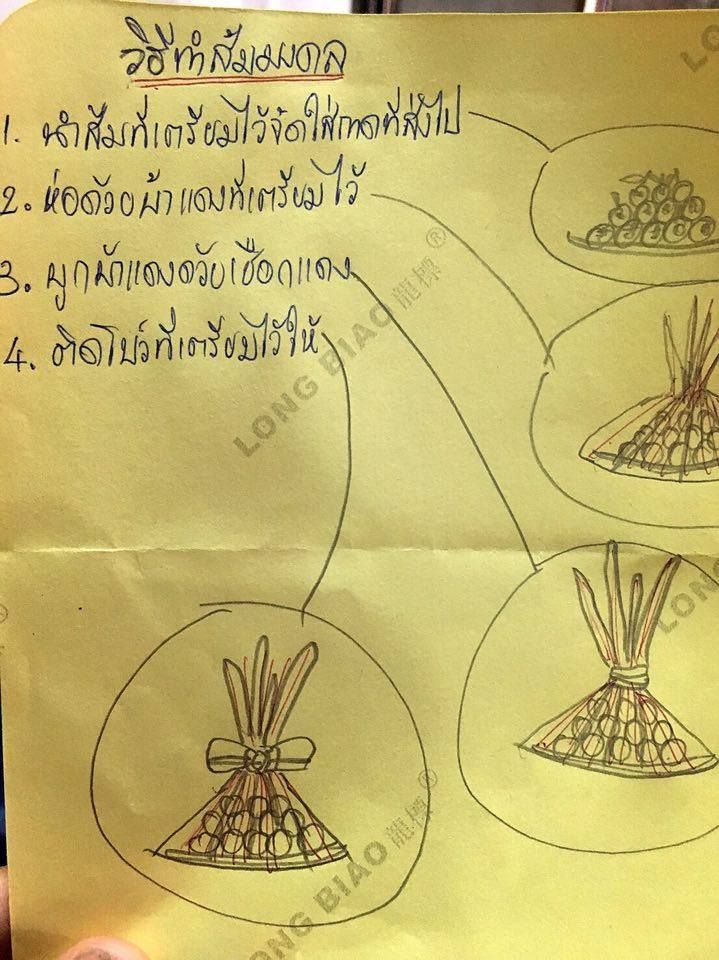 วิธีทำส้มมงคล
1. นำส้มที่เตรียมไว้จัดใส่ถาดที่ส่งไป
2. ห่อด้วยผ้าแดงที่เตรียมไว้
3. ผูกผ้าแดงด้วยเชือกแดง
4. ติดโบว์ที่เตรียมไว้ให้
LONG BIAO 龍標 ®
LONG BIAO 龍標 ®
LONG
LO